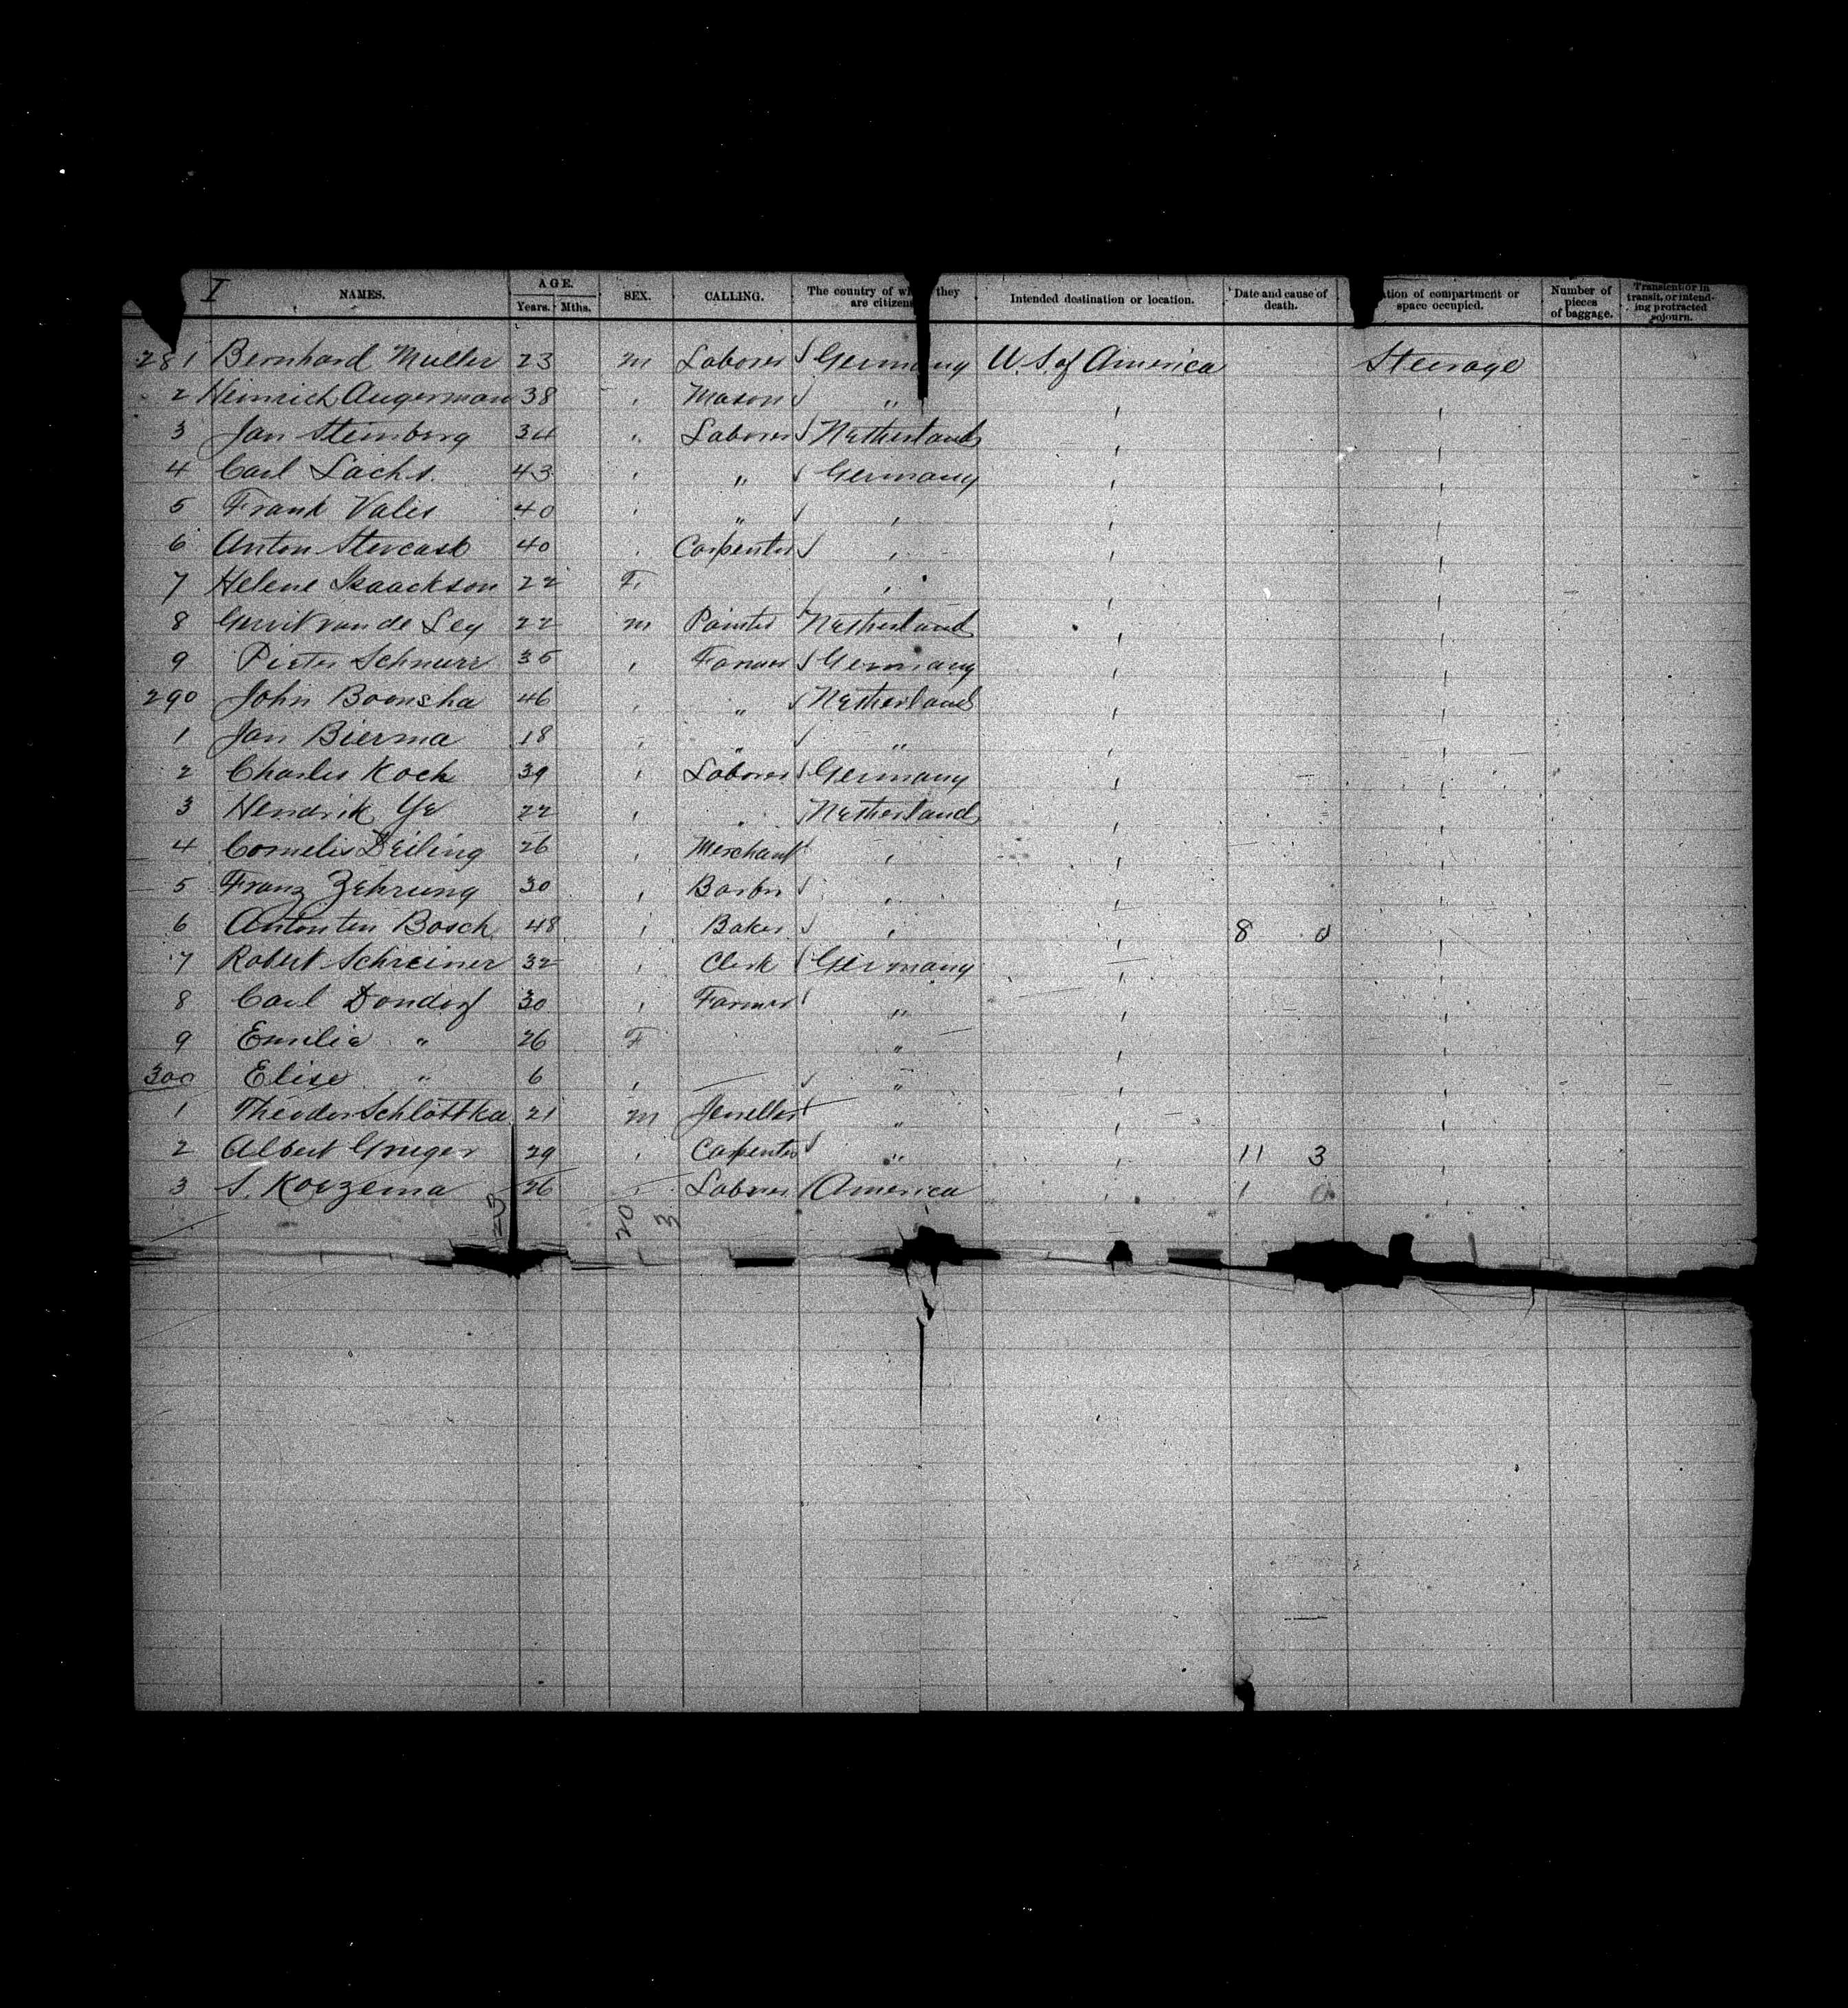 I NAMES. AGE. Years. Mths. SEX. CALLING. The country of wh they are citizens Intended destination or location. Date and cause of death. ation of compartment or space occupied. Number of pieces of baggage. Transient or in transit, or intending protracted sojourn.
281 Bernhard Muller 23 m Laborer Germany U.S. of America Steerage
2 Heinrich Augerman 38 " Mason "
3 Jan Steinberg 34 " Laborer Netherlands
4 Carl Sachs 43 " " Germany
5 Frank Valis 40 " " "
6 Anton 40 " Carpenter "
7 Helene Isaackson 22 F "
8 Gerrit van de Ley 22 m Painter Netherland
9 Pieter Schnurr 35 " Farmer Germany
290 John Boonsha 46 " " Netherland
1 Jan Bierma 18 " " "
2 Charles Koch 39 " Laborer Germany
3 Hendrik 22 " " Netherland
4 Cornelis Deiling 26 " Merchant "
5 Franz Zehrung 30 " Barber "
6 Anton ten Bosch 48 " Baker " 8 0
7 Robert Schreiner 32 " Clerk Germany
8 Carl Dondorf 30 " Farmer "
9 Emilie " 26 F "
300 Elise " 6 " — "
1 Theodor Schlottka 21 m Jeweller "
2 Albert Gruger 29 " Carpenter " 11 3
3 S. Korzema 26 " Laborer America 1 0
23 20 3